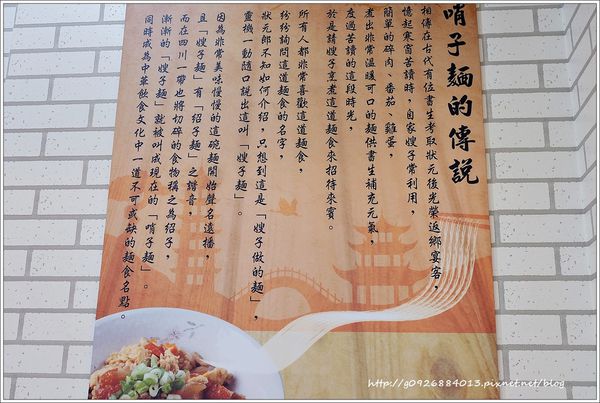 哨子麵的傳說
相傳在古代有位書生考取狀元後光榮返鄉宴客，
憶起寒窗苦讀時，自家嫂子常利用，
簡單的碎肉、番茄、雞蛋，
煮出非常溫暖可口的麵供書生補充元氣，
度過苦讀的這段時光，
於是請嫂子烹煮這道麵食來招待來賓。
所有人都非常喜歡這道麵食，
紛紛詢問這道麵食的名字，
狀元郎不知如何介紹，只想到這是「嫂子做的麵」，
靈機一動隨口說出這叫「嫂子麵」。
因為非常美味慢慢的這碗麵開始聲名遠播，
且「嫂子麵」有「紹子麵」之諧音，
而在四川一帶也將切碎的食物稱之為紹子，
漸漸的「嫂子麵」就被叫成現在的「哨子麵」。
同時成為中華飲食文化中一道不可或缺的麵食名點。
http://g0926884013.pixnet.net/blog